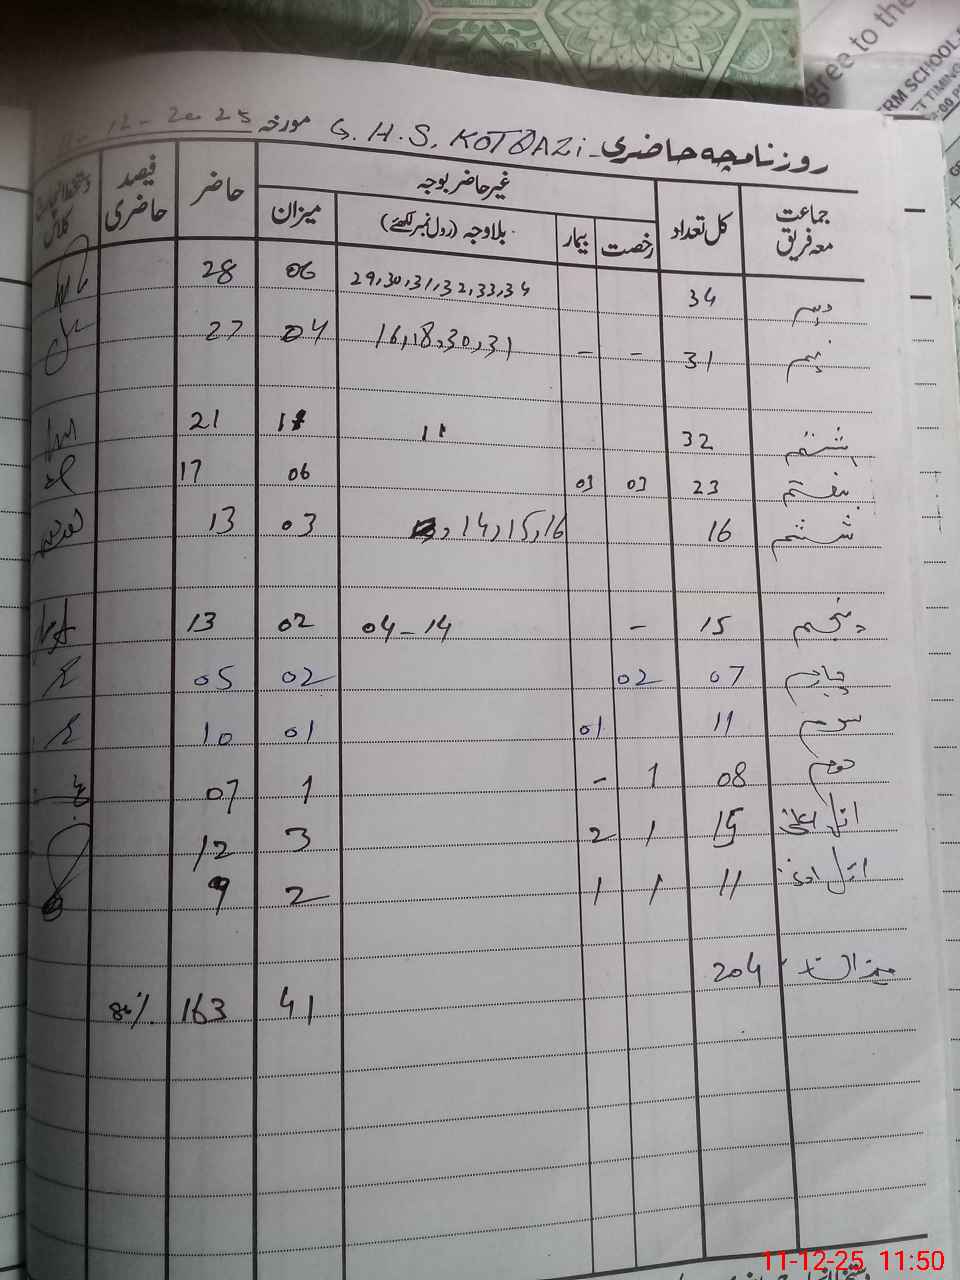 gree to the
ERM SCHOOL
T TIMING
روزنامچہ حاضری G.H.S. KOTQAZi مورخہ 12-2025
جماعت معہ فریق کل تعداد غیر حاضر بوجہ حاضر فیصد حاضری کلاس
رخصت بیمار بلاوجہ (رول نمبر لکھئے) میزان
دہم 34 29,30,31,32,33,34 06 28
نہم 31 - - 16,18,30,31 04 27
ہشتم 32 11 11 21
ہفتم 23 03 03 06 17
ششم 16 14,15,16 03 13
پنجم 15 - 04-14 02 13
چہارم 07 02 02 05
سوم 11 01 01 10
دوم 08 1 - 1 07
اول اعلیٰ 15 1 2 3 12
اول ادنیٰ 11 1 1 2 9
میزان 204 41 163 80%
11-12-25 11:50